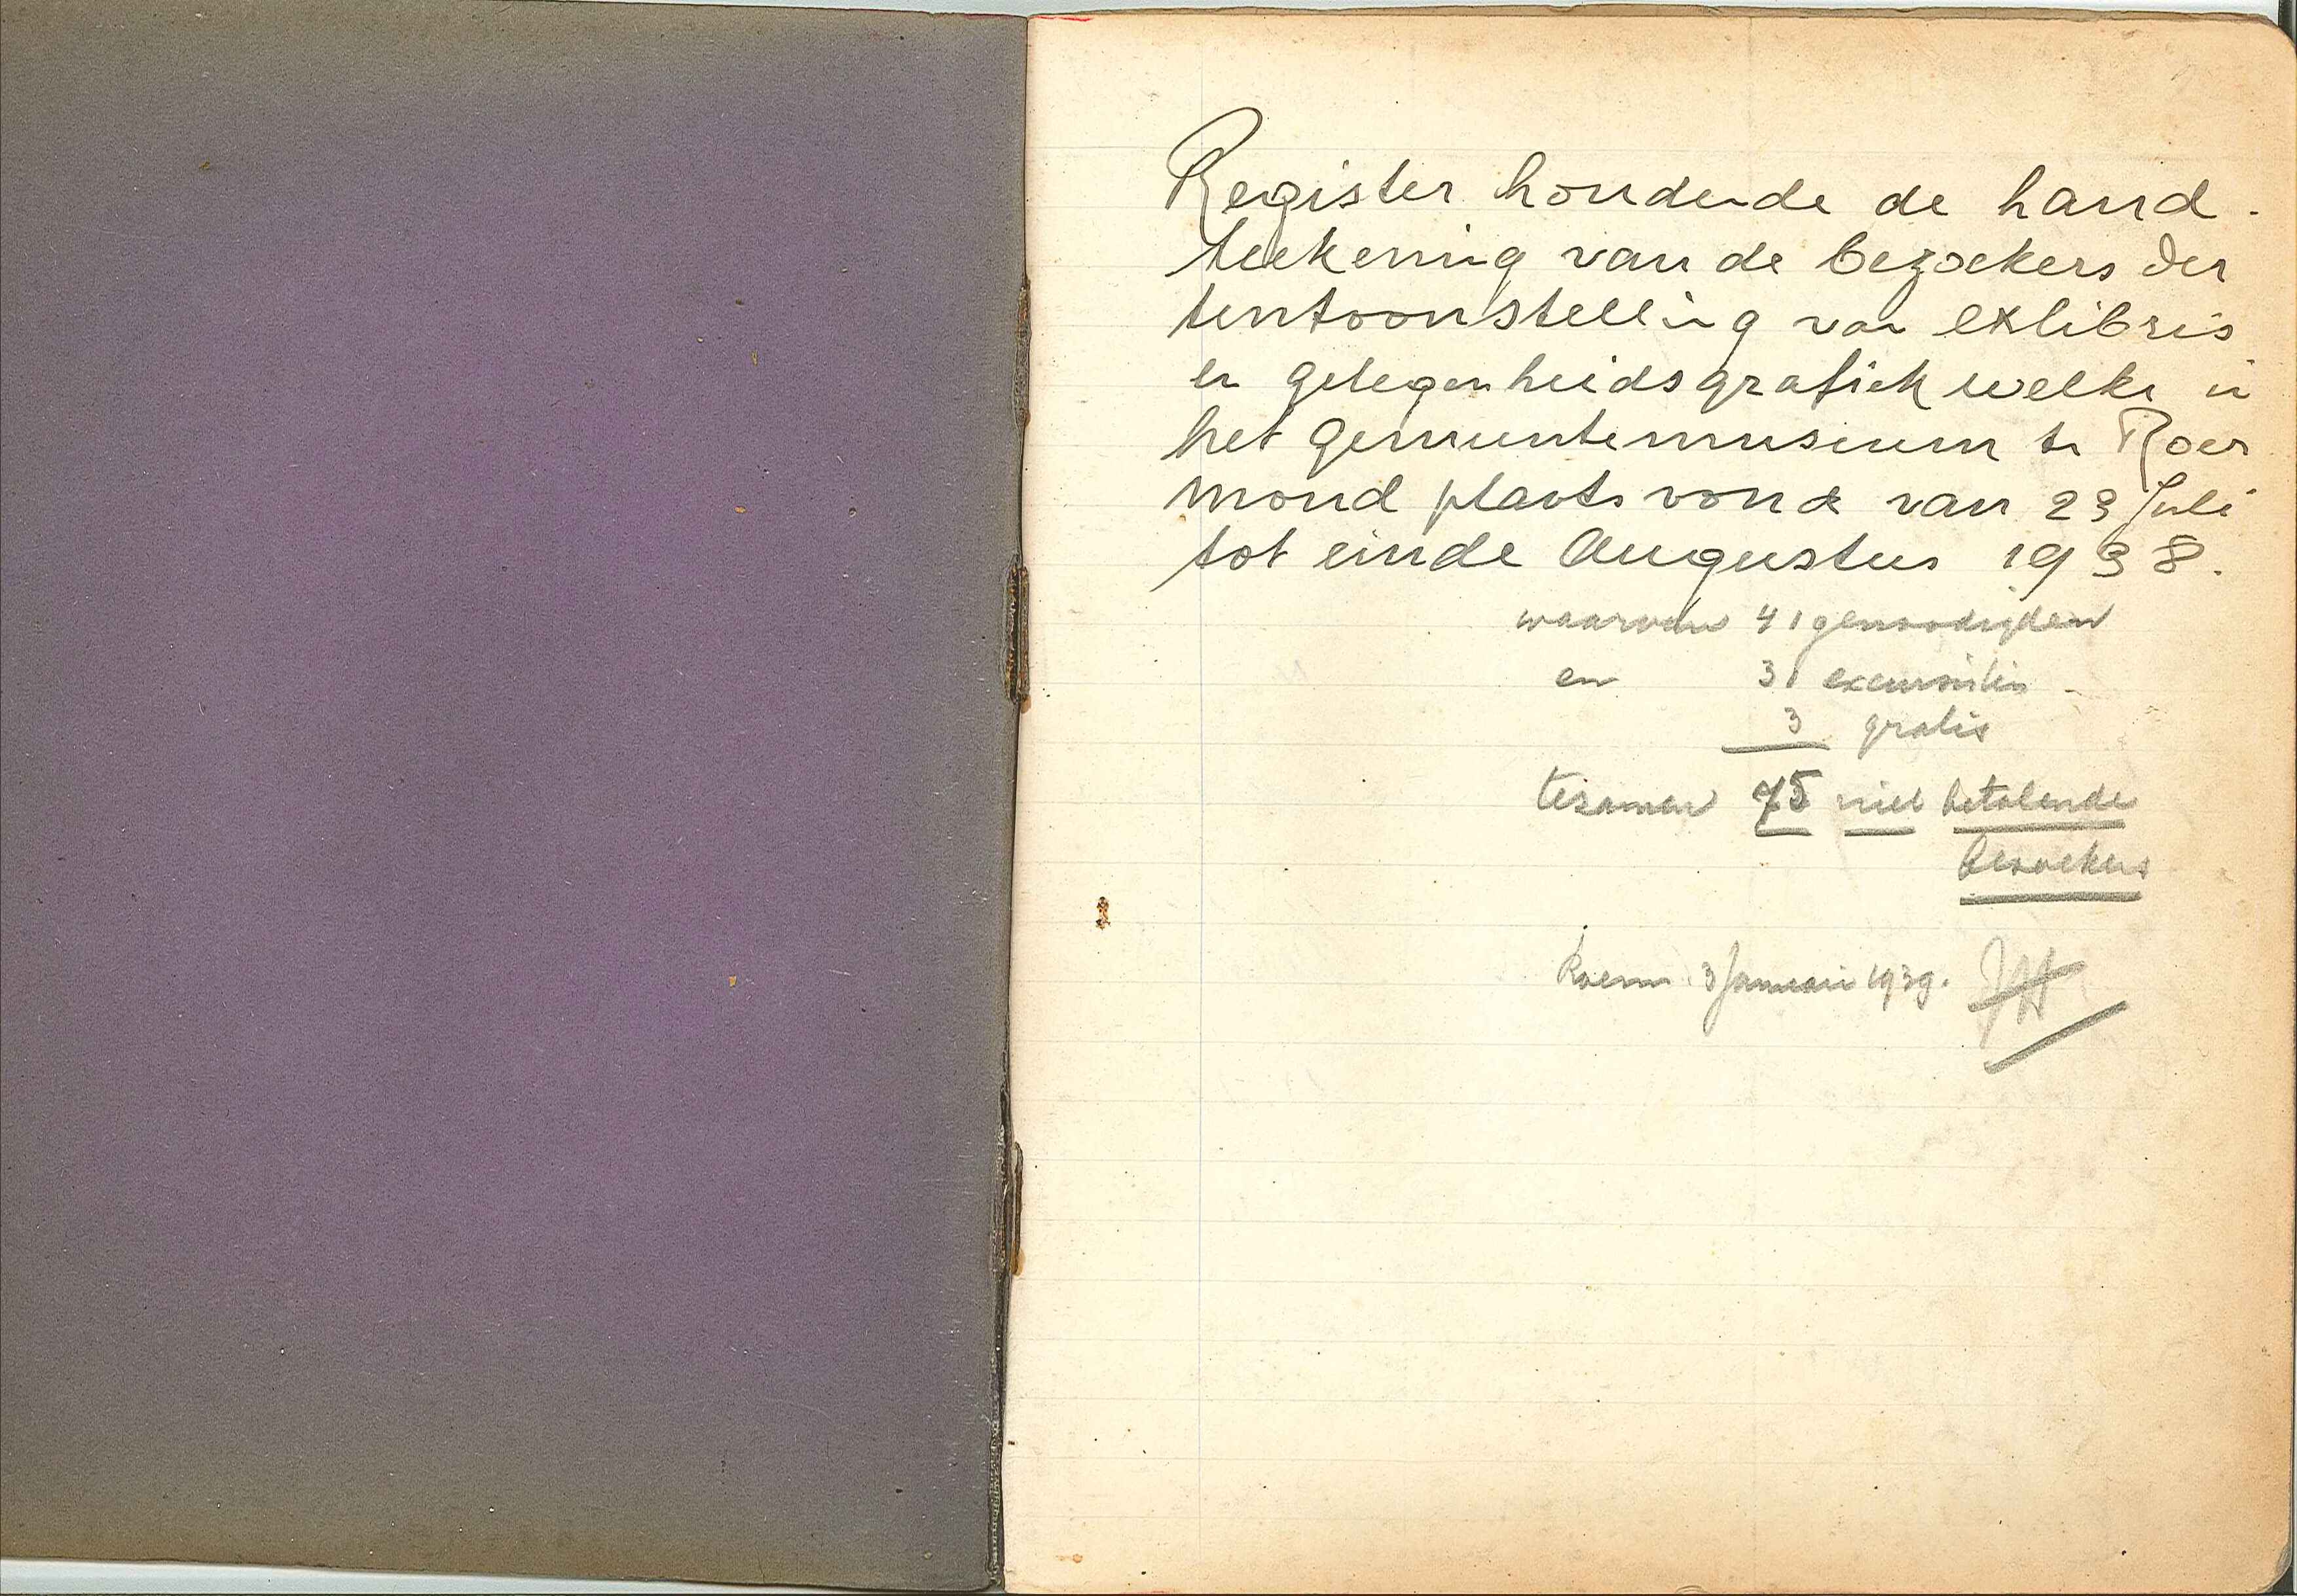 Register houdende de hand-
teekening van de bezoekers der
tentoonstelling van exlibris
en gelegenheidsgrafiek welke in
het gemeentemuseum te Roer
mond plaats vond van 23 Juli
tot einde Augustus 1938.
waarvan 41 genoodigden
en 31 excursisten
3 gratis
tesamen 75 niet betalende
bezoekers
Roerm. 3 Januari 1939.